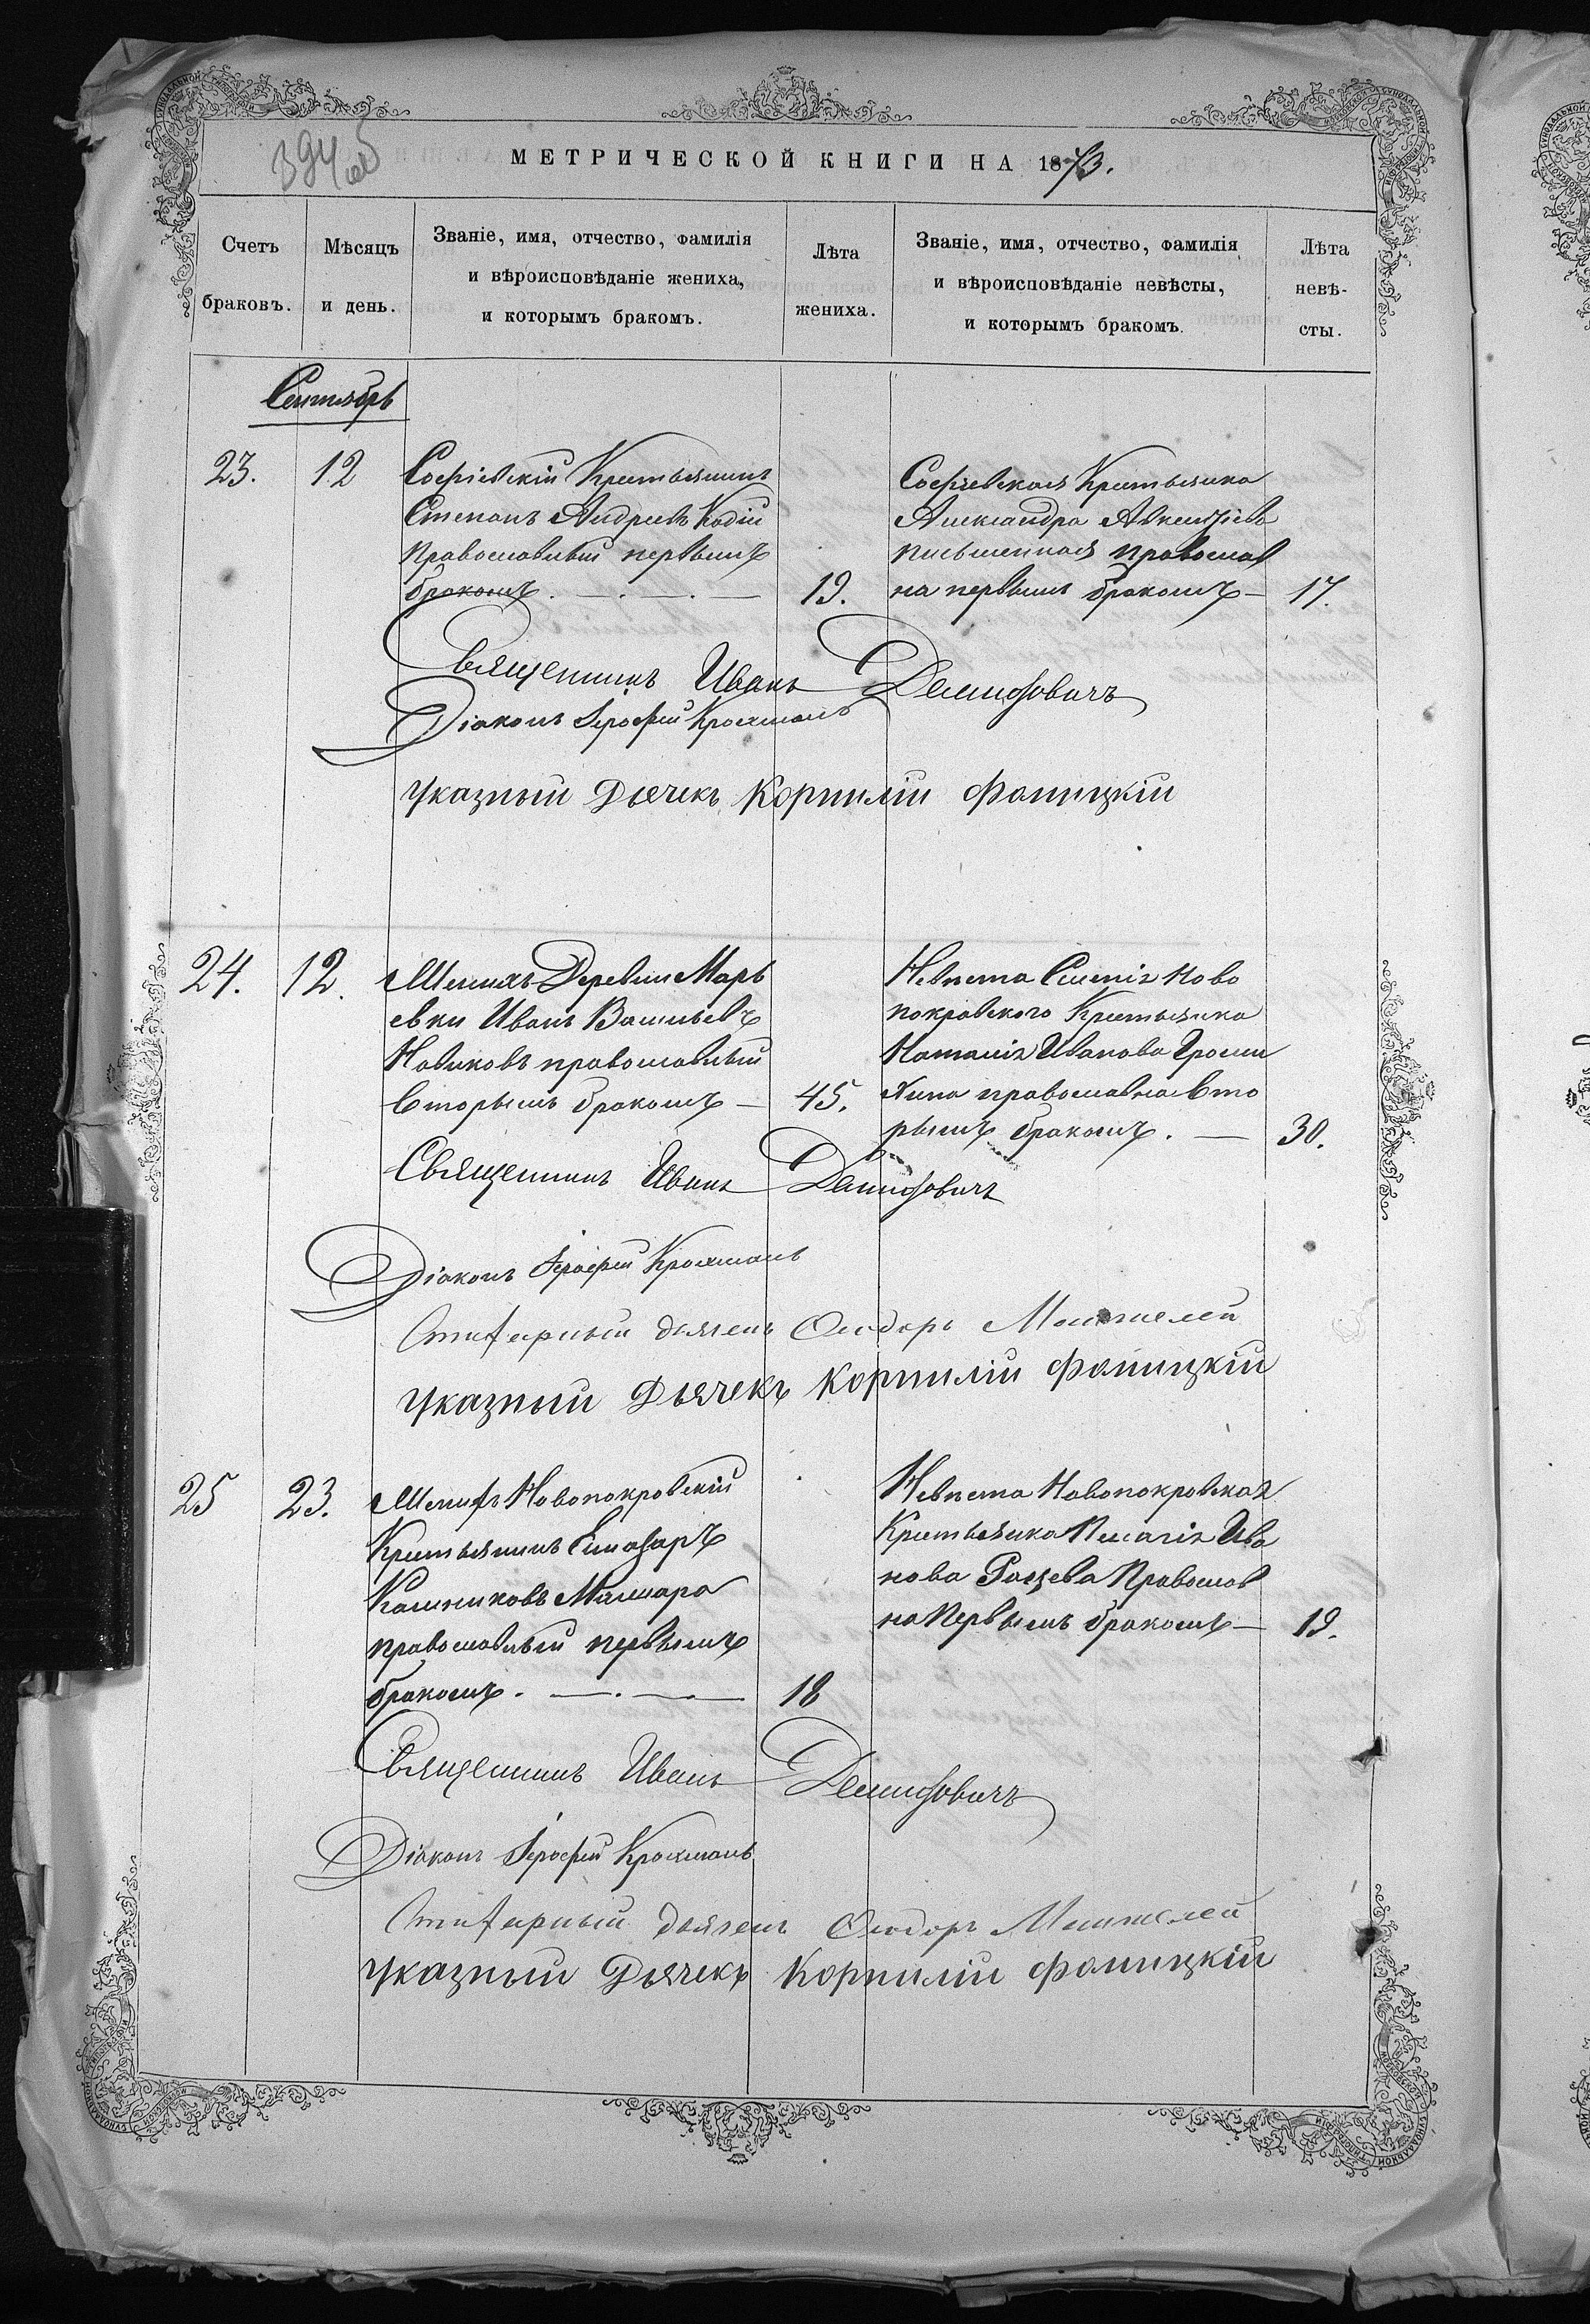 394 об
МЕТРИЧЕСКОЙ КНИГИ НА 1873.
Счетъ браковъ.
Мѣсяцъ и день.
Званіе, имя, отчество, фамилія
и вѣроисповѣданіе жениха,
и которымъ бракомъ.
Лѣта жениха.
Званіе, имя, отчество, фамилія
и вѣроисповѣданіе невѣсты,
и которымъ бракомъ.
Лѣта невѣ-
сты.
Сентябрь
23. 12
Софіевскій Крестьянинъ
Степанъ Андреевъ Кодій
Православный первымъ
бракомъ. 19.
Софіевская Крестьянка
Александра Авксентіева
Письменная православ
на первымъ бракомъ 17.
Священникъ Иванъ Демидовичъ
Діаконъ Іерофей Крохмаль
Указный Дьячекъ Корнилій Фаницкій
24. 12.
Женихъ Деревни Марь
евки Иванъ Васильевъ
Новиковъ православный
вторымъ бракомъ 45.
Невеста Селенія Ново
покровского Крестьянка
Наталія Иванова
православна вто
рымъ бракомъ. 30.
Священникъ Иванъ Демидовичъ
Діаконъ Іерофей Крохмаль
Стихарный дьячекъ Ѳеодоръ
Указный Дьячекъ Корнилій Фаницкій
25 23.
Женихъ Новопокровскій
Крестьянинъ Елиазаръ
Калинниковъ
православный первымъ
бракомъ. 18
Невеста Новопокровская
Крестьянка Пелагія Ива
нова Православ
на Первымъ бракомъ 19.
Священникъ Иванъ Демидовичъ
Діаконъ Іерофей Крохмаль
Стихарный дьячекъ Ѳеодоръ
Указный Дьячекъ Корнилій Фаницкій